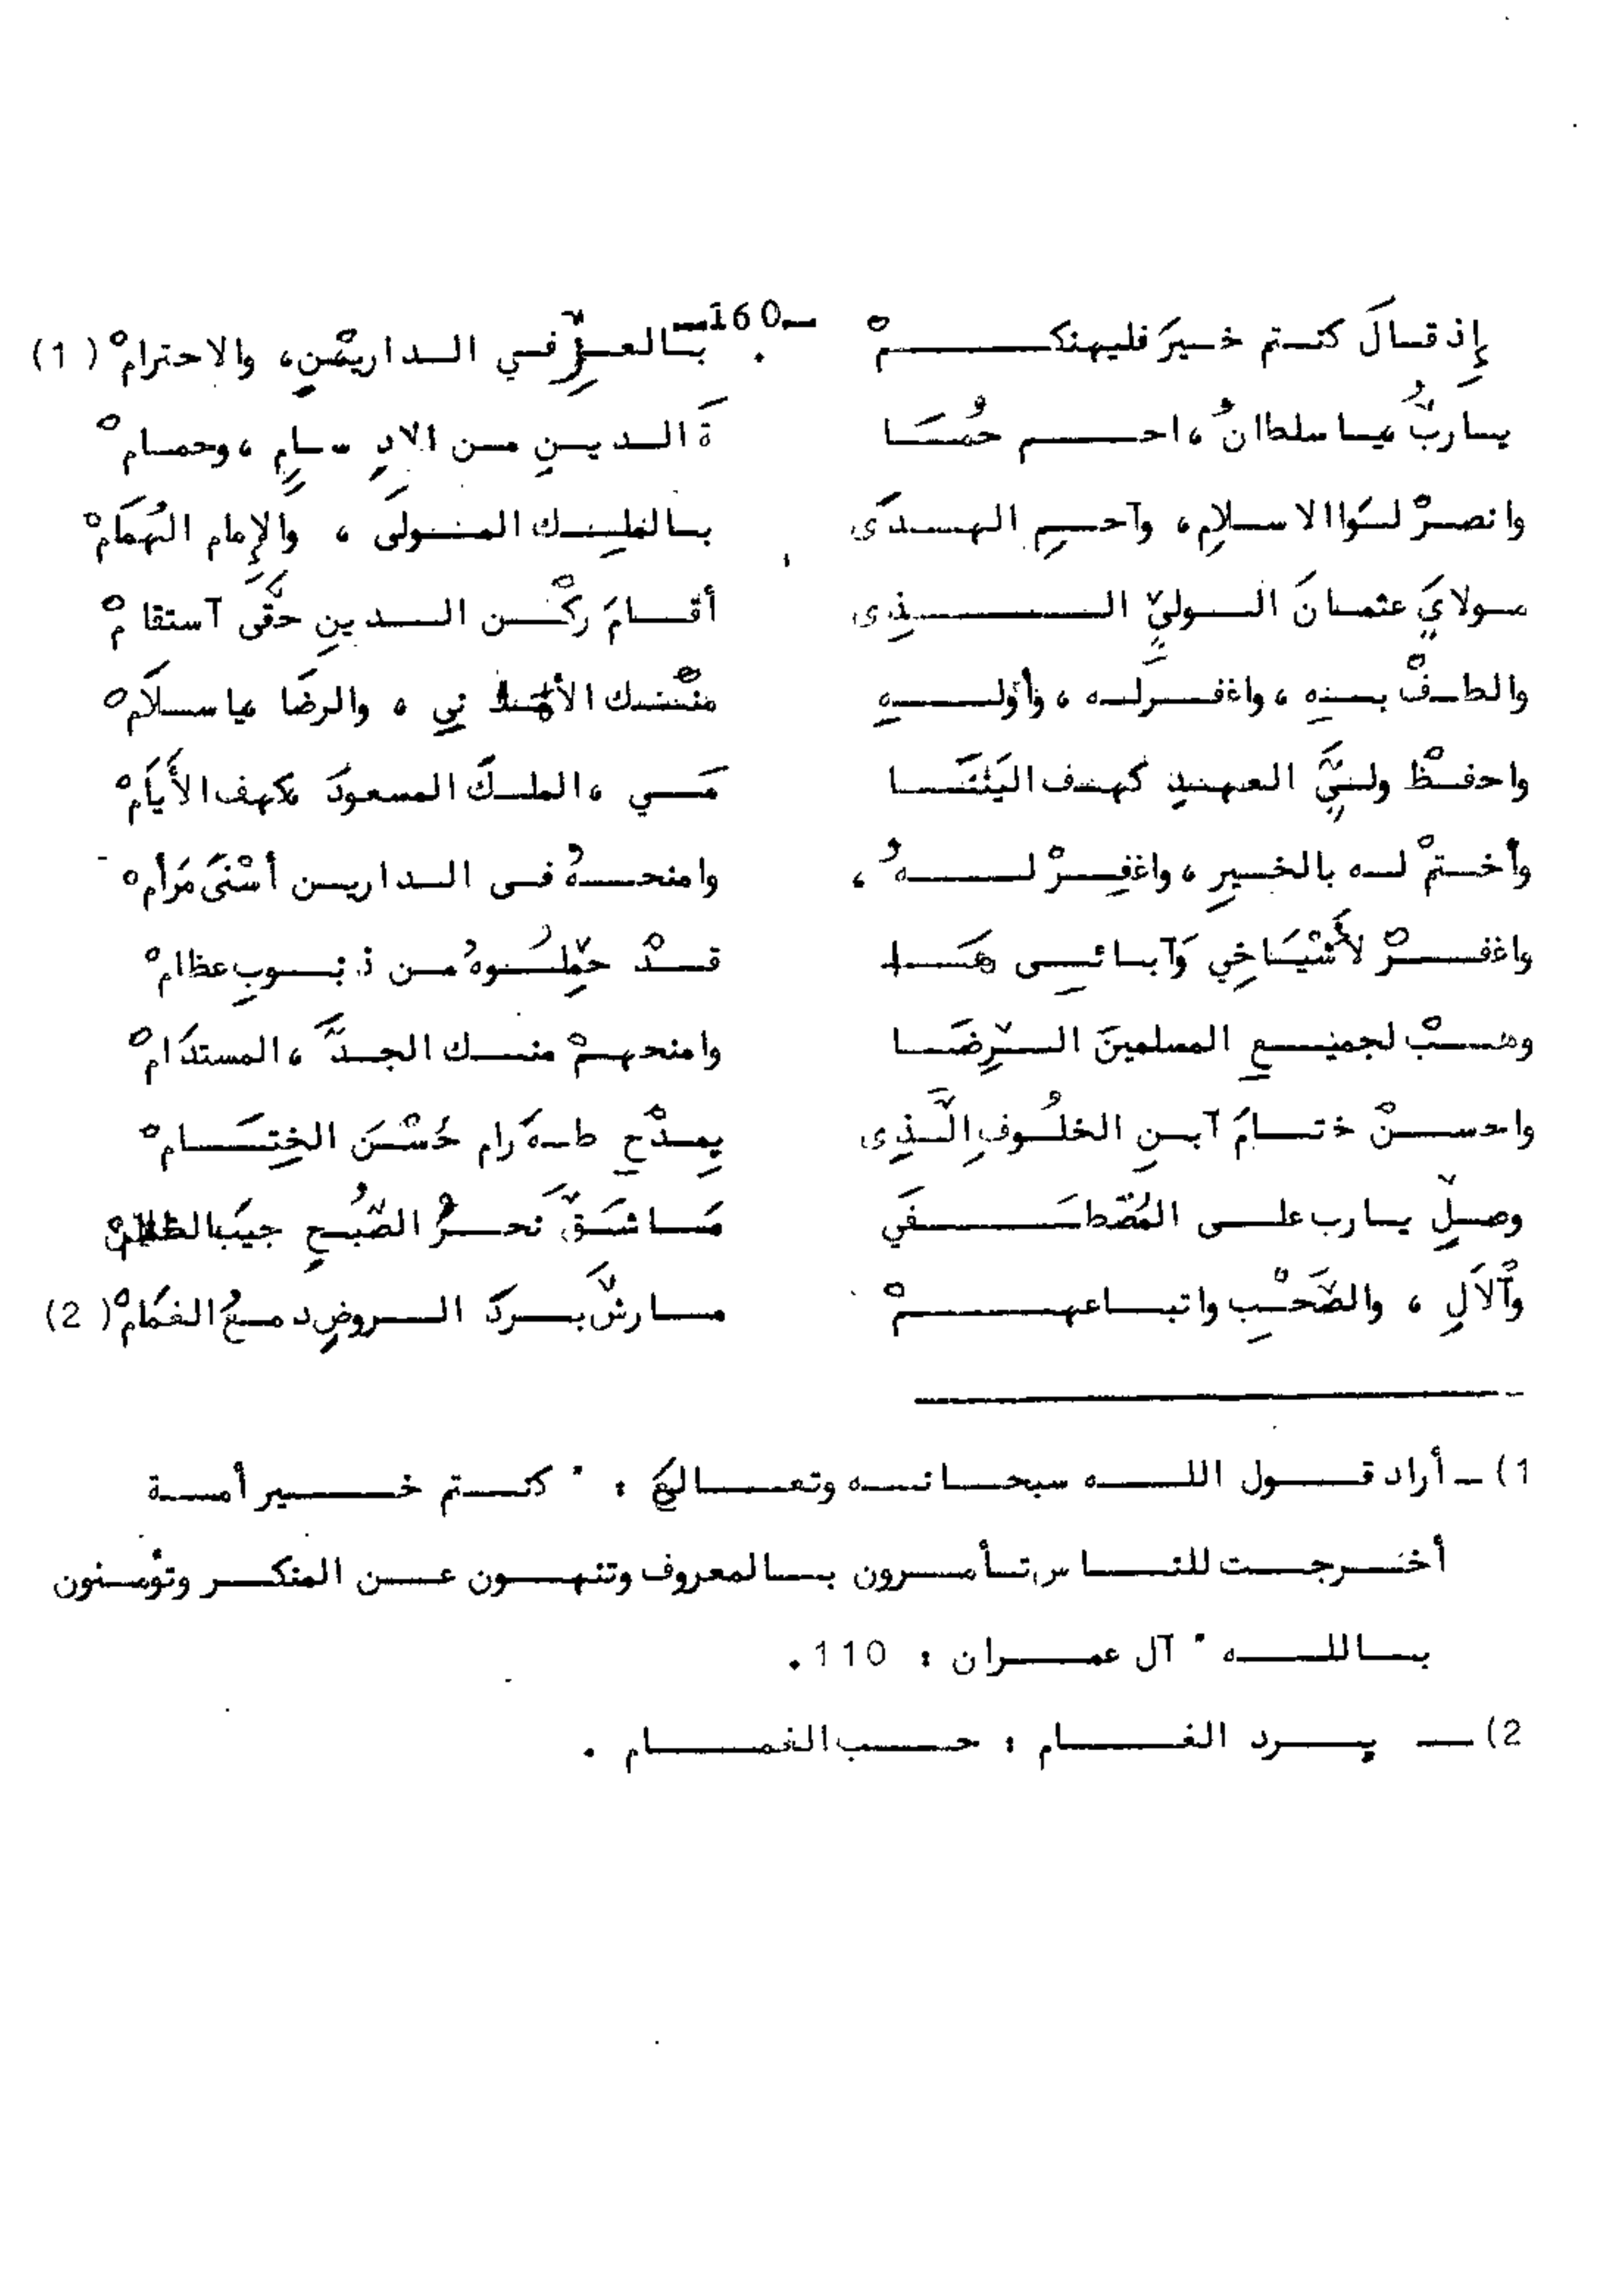 -160-
إِذ قالَ كنتم خيرَ فليهنكمْ بالعزِّ في الدارينِ، والاحترامْ (1)
ياربُّ ياسلطانُ، احم حُمَا ةَ الدينِ من سامٍ، وحامْ
وانصرْ لوَا الاسلامِ، وآحمِ الهدَى بالملِك المولَى، والإِمام الهُمَامْ
مولايَ عثمانَ الوليِّ الذِى أقامَ ركْن الدينِ حتَّى آستقامْ
والطفْ بهِ، واغفرله، وأولهِ منْك الأمانِي، والرضَا ياسلَامْ
واحفظْ وليَّ العهدِ كهف اليَتَا مَي، الملكَ المسعودَ كهف الأيَامْ
وأختمْ له بالخيرِ، واغفِرْ لهُ، وامنحهُ فى الدارين أسْنَى مَرَامْ
واغفرْ لأَشْيَاخِي وَآبائِى قدْ حمِّلُوهُ من ذنوبِ عظامْ
وهبْ لجميعِ المسلمينَ الرِّضَا وامنحهمْ منك الجدَّ، المستدَامْ
واحسنْ ختامَ آبنِ الخلُوفِ الَّذِى بِمدْحِ طهَ رام حُسْنَ الختِامْ
وصلِّ يارب على المُصْطَفَي مَاشَقَّ نحرُ الصُّبحِ جيبَ الظلامْ
وآلآلِ، والصَّحْبِ واتباعهمْ مارشَّ بردَ الروضِ دمعُ الغمَامْ (2)
1) ـ أراد قول الله سبحانه وتعالى : " كنتم خير أمة
أخرجت للناس تأمرون بالمعروف وتنهون عن المنكر وتؤمنون
بالله " آل عمران : 110.
2) ـ برد الغام : حب الغمام .